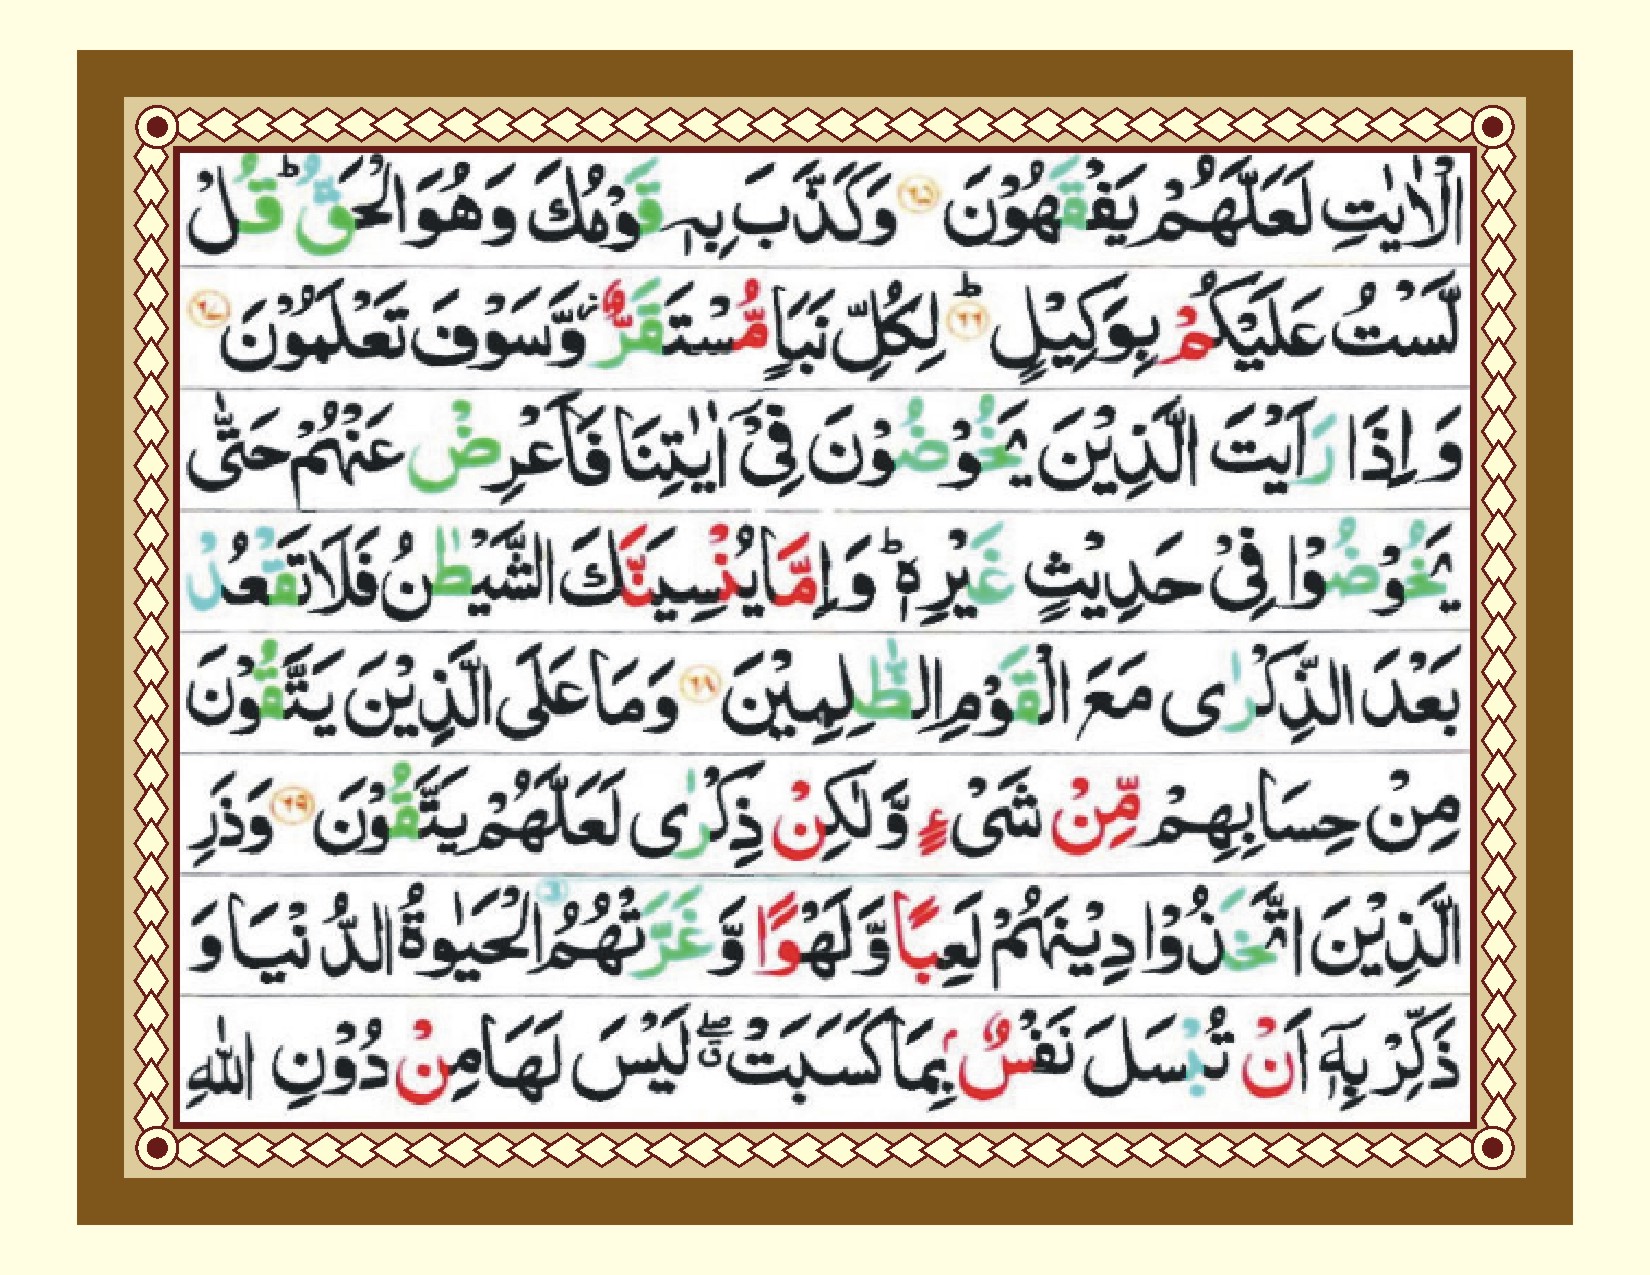 الْاٰیٰتِ لَعَلَّهُمْ یَفْقَهُوْنَ ﴿۶۵﴾ وَكَذَّبَ بِهٖ قَوْمُكَ وَهُوَ الْحَقُّ ؕ قُلْ
لَّسْتُ عَلَیْكُمْ بِوَكِیْلٍ ﴿۶۶﴾ؕ لِكُلِّ نَبَاٍ مُّسْتَقَرٌّ ؗ وَّسَوْفَ تَعْلَمُوْنَ ﴿۶۷﴾
وَ اِذَا رَاَیْتَ الَّذِیْنَ یَخُوْضُوْنَ فِیْۤ اٰیٰتِنَا فَاَعْرِضْ عَنْهُمْ حَتّٰی
یَخُوْضُوْا فِیْ حَدِیْثٍ غَیْرِهٖ ؕ وَ اِمَّا یُنْسِیَنَّكَ الشَّیْطٰنُ فَلَا تَقْعُدْ
بَعْدَ الذِّكْرٰی مَعَ الْقَوْمِ الظّٰلِمِیْنَ ﴿۶۸﴾ وَمَا عَلَی الَّذِیْنَ یَتَّقُوْنَ
مِنْ حِسَابِهِمْ مِّنْ شَیْءٍ وَّلٰكِنْ ذِكْرٰی لَعَلَّهُمْ یَتَّقُوْنَ ﴿۶۹﴾ وَذَرِ
الَّذِیْنَ اتَّخَذُوْا دِیْنَهُمْ لَعِبًا وَّلَهْوًا وَّ غَرَّتْهُمُ الْحَیٰوةُ الدُّنْیَا وَ
ذَكِّرْ بِهٖۤ اَنْ تُبْسَلَ نَفْسٌۢ بِمَا كَسَبَتْ ۖۗ لَیْسَ لَهَا مِنْ دُوْنِ اللّٰهِ